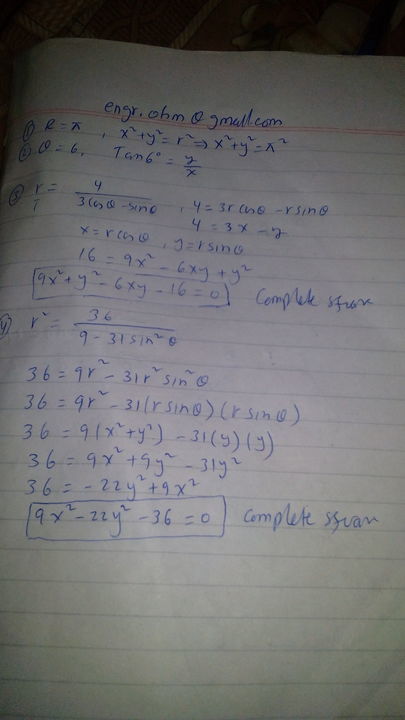 engr.ohm @ gmail.com
① R = π , x² + y² = r² ⇒ x² + y² = π²
② θ = 6, Tan6° = y/x
③ r/1 = 4/(3cosθ - sinθ) , 4 = 3rcosθ - rsinθ
4 = 3x - y
x = rcosθ , y = rsinθ
16 = 9x² - 6xy + y²
9x² + y² - 6xy - 16 = 0 Complete
④ r² = 36/(9 - 31sin²θ)
36 = 9r² - 31r²sin²θ
36 = 9r² - 31(rsinθ)(rsinθ)
36 = 9(x²+y²) - 31(y)(y)
36 = 9x² + 9y² - 31y²
36 = -22y² + 9x²
9x² - 22y² - 36 = 0 Complete